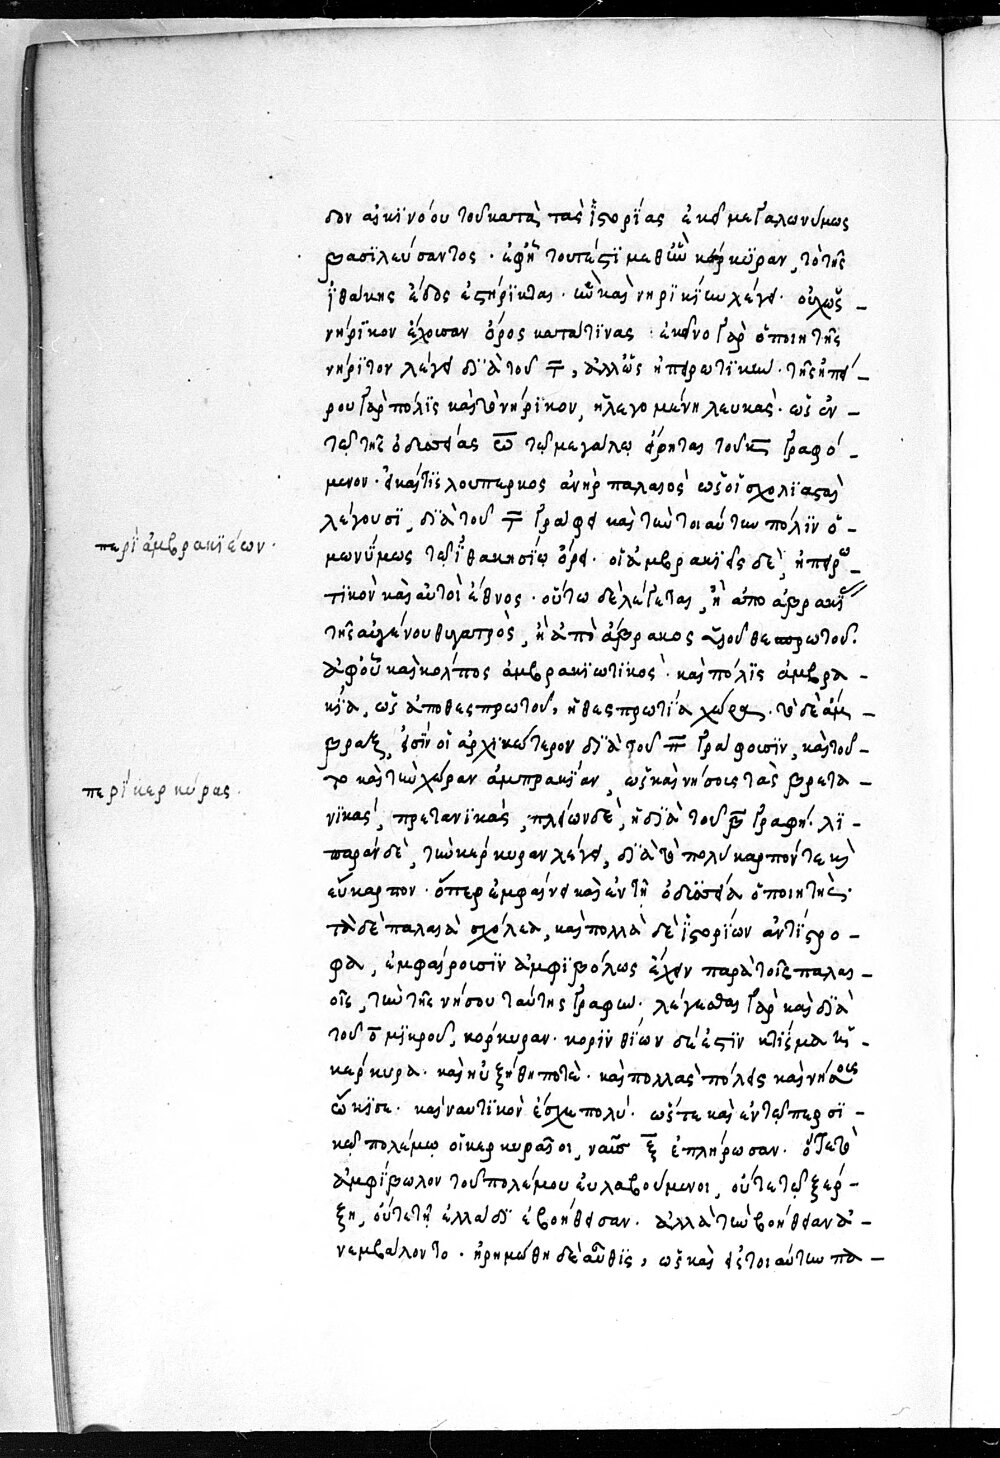 δὸν ἀλκϊνόου τοῦ κατὰ τὰς ἱ̈στορΐας ἐκεῖ μεγαλωνύμως
βασϊλεύσαντος · ἐφ' ἧ τουτέστϊ μεθ' ἣν κέρκϋραν, τὸ τῆς
ϊ̓θάκης ἕδος ἐστήρϊκται · ἣν καὶ νηρϊκΐην λέγει · οὐχ ὡς
νήρϊκον ἔχουσαν ὄρος κατά τϊνας · ἐκεῖνο γὰρ ὁ ποιητὴς
νήρϊτον λέγει δϊὰ τοῦ τ̅, ἀλλ' ὡς ἠπειρωτϊκήν · τῆς ἠπεί-
ρου γὰρ πόλϊς καὶ τὸ νήρϊκον, ἡ λεγομένη λευκὰς · ὡς ἐν
τῷ τῆς ὀδυσσείας ω̅ τῷ μεγάλῳ εἴρηται τοῦ κ̅ γραφο-
μενον · εἰ καί τϊς λουπερκος ἀνὴρ παλαιὸς ὡς οἱ σχολϊασταὶ
λέγουσϊ, δϊὰ τοῦ τ̅ γράφει καὶ τὴν τοιαύτην πόλϊν ὁ-
μωνύμως τῷ ϊ̓θακησΐῳ ὄρει · οἱ ἀμβρακϊεῖς δὲ, ἠπειρω-
τϊκὸν καὶ αὐτοὶ ἔθνος · οὕτω δὲ λέγεται, ἢ ἀπὸ ἀμβρακϊ
τῆς αὐγένου θυγατρὸς, ἢ ἀπὸ ἄμβρακος υἱοῦ θεσπρωτοῦ.
ἀφ' οὗ καὶ κόλπος ἀμβρακϊωτϊκὸς · καὶ πόλϊς ἀμβρα-
κΐα, ὡς ἀπὸ θεσπρωτοῦ, ἡ θεσπρωτΐα χώρα · τὸ δὲ ἄμ-
βραξ, εἰσῒν οἳ ἀρχϊκώτερον δϊὰ τοῦ π̅ γράφουσϊν, καὶ τοῦ-
το καὶ τὴν χώραν ἀμπρακΐαν, ὡς καὶ νήσους τὰς βρετα-
νϊκὰς, πρετανϊκὰς, πλέων δὲ, ἡ δϊὰ τοῦ β̅ γραφή · λϊ-
παρὰν δὲ, τὴν κέρκυραν λέγει, δϊὰ τὸ πολύκαρπόν τε κὶ
εὔκαρπον · ὅπερ ἐμφαίνει καὶ ἐν τῇ ὀδυσσείᾳ ὁ ποιητὴς ·
τὰ δὲ παλαιὰ σχόλια, καὶ πολλὰ δὲ ἱ̈στορϊῶν ἀντΐγρα-
φα, ἐμφαίνουσϊν ἀμφϊβόλως ἔχειν παρὰ τοῖς παλαι-
οῖς, τὴν τῆς νήσου ταύτης γραφήν · λέγεσθαι γὰρ καὶ δϊὰ
τοῦ ο̅ μϊκροῦ, κόρκυραν · κορϊνθΐων δέ ἐστϊν κτΐσμα ἡ
κέρκυρα · καὶ ηὐξήθη ποτὲ · καὶ πολλὰς πόλεις καὶ νήσους
ᾤκϊσε · καὶ ναυτϊκὸν ἔσχε πολύ · ὥστε καὶ ἐν τῷ περσϊ-
κῷ πολέμῳ οἱ κερκυραῖοι, ναῦς ξ̅ ἐπλήρωσαν · ὅτε τὸ
ἀμφΐβολον τοῦ πολέμου εὐλαβούμενοι, οὔτε τῷ ξέρ-
ξῃ, οὔτε τῇ ἑλλάδϊ ἐβοήθησαν · ἀλλὰ τὴν βοήθειαν ἀ-
νεμβάλοντο · ἠρημώθη δὲ αὖθϊς, ὡς καὶ εἰς τοιαύτην πα-
περῒ ἀμβρακϊέων ·
περῒ κερκύρας ·